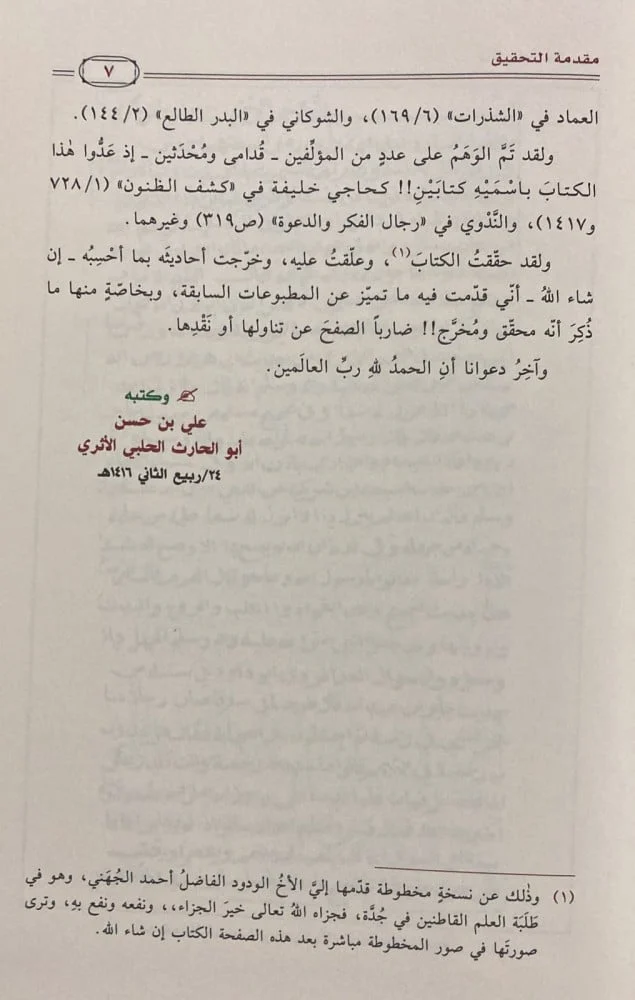 مقدمة التحقيق
٧
العماد في «الشذرات» (١٦٩/٦)، والشوكاني في «البدر الطالع» (١٤٤/٢).
ولقد تَمَّ الوَهَمُ على عددٍ من المؤلِّفين ـ قُدامى ومُحْدَثين ـ إذ عَدُّوا هٰذا
الكتابَ باسْمَيْهِ كتابَيْنِ!! كحاجي خليفة في «كشف الظنون» (٧٢٨/١
و١٤١٧)، والنَّدْوي في «رجال الفكر والدعوة» (ص٣١٩) وغيرهما.
ولقد حقّقتُ الكتابَ(١)، وعلّقتُ عليه، وخرّجت أحاديثَه بما أحْسِبُه ـ إن
شاء اللهُ ـ أنّي قدّمت فيه ما تميّز عن المطبوعات السابقة، وبخاصّةٍ منها ما
ذُكِرَ أنّه محقّق ومُخرَّج!! ضارباً الصفحَ عن تناولها أو نَقْدِها.
وآخِرُ دعوانا أنِ الحمدُ للهِ ربِّ العالَمين.
وكتبه
علي بن حسن
أبو الحارث الحلبي الأثري
٢٤/ربيع الثاني ١٤١٦هـ
(١) وذٰلك عن نسخةٍ مخطوطة قدّمها إليَّ الأخُ الودود الفاضلُ أحمد الجُهَني، وهو في
طَلَبَة العلم القاطنين في جُدَّة، فجزاه اللهُ تعالى خيرَ الجزاء،، ونفعه ونفع بهِ، وترى
صورتَها في صور المخطوطة مباشرة بعد هذه الصفحة الكتاب إن شاء الله.